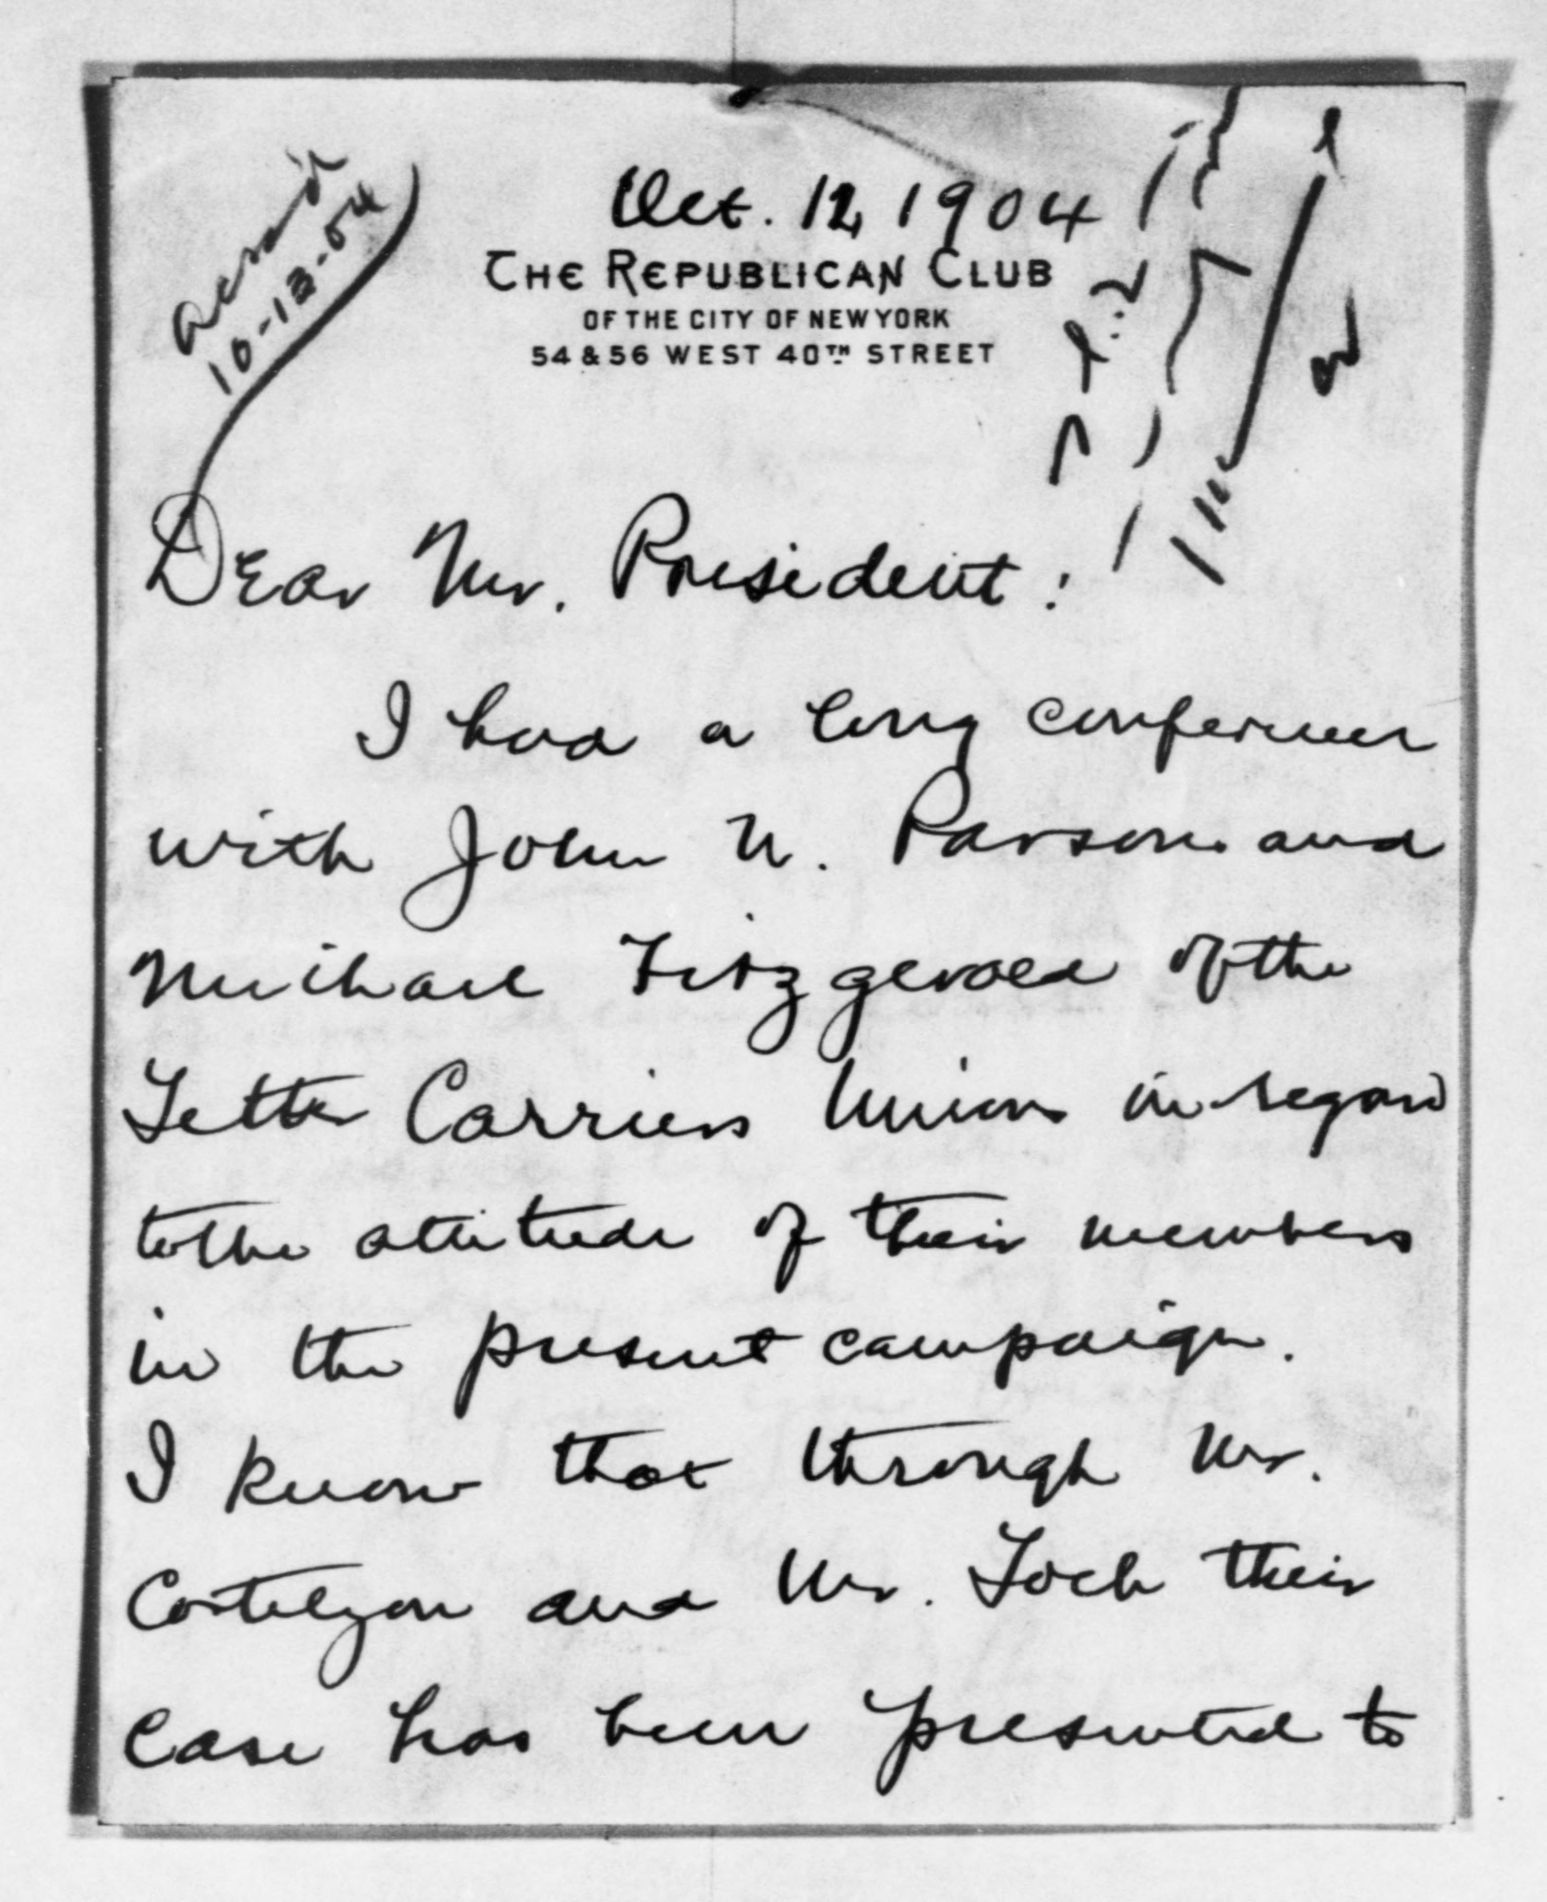 Ackn'd
10-13-04
Oct. 12, 1904
THE REPUBLICAN CLUB
OF THE CITY OF NEW YORK
54 & 56 WEST 40TH STREET
Dear Mr. President:
I had a long conference
with John N. Parsons and
Michael Fitzgerald of the
Letter Carriers Union in regard
to the attitude of their members
in the present campaign.
I know that through Mr.
Cortelyou and Mr. Loeb their
case has been presented to